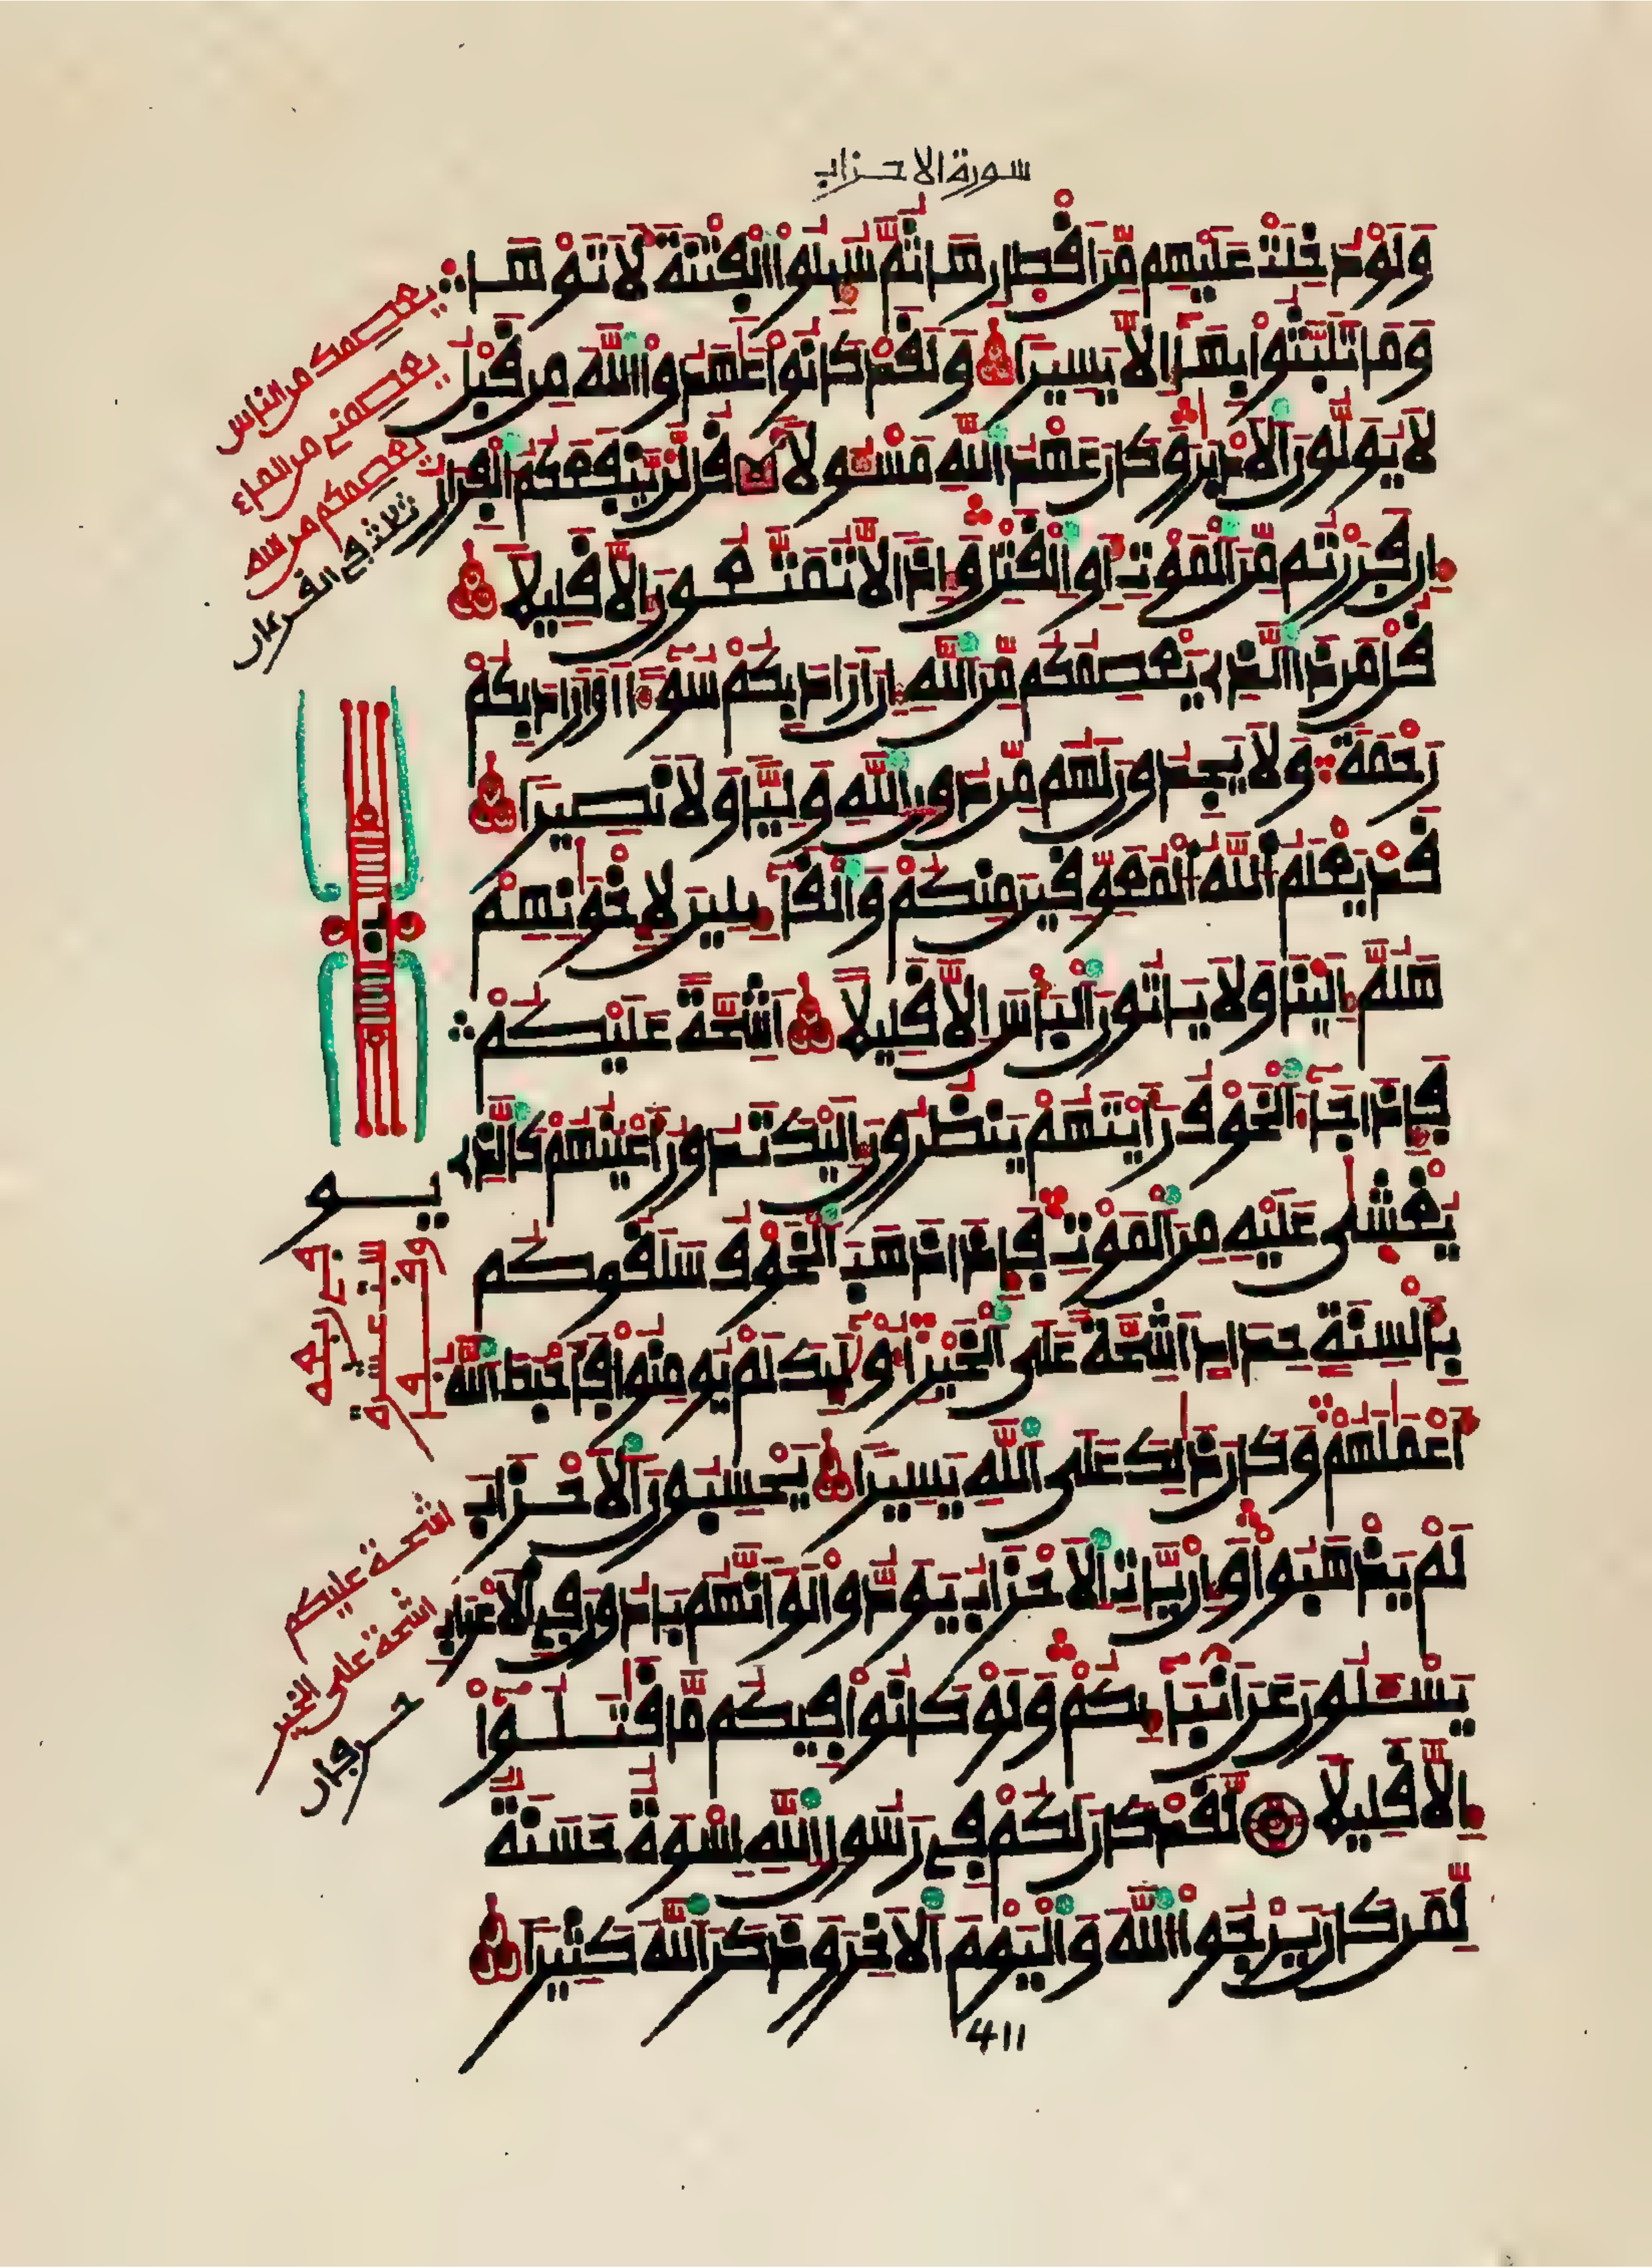 سورة الاحزاب
وَلَوْ دُخِلَتْ عَلَيْهِم مِّنَ اَقْطِارِهَا ثُمَّ سُئِلُواْ الْفِتْنَةَ لَأَتَوْهَا
وَمَا تَلَبَّثُواْ بِهَا إِلَّا يَسِيرًا وَلَقَدْ كَانُواْ عَٰهَدُواْ اللَّهَ مِن قَبْلُ
لَا يُوَلُّونَ الْأَدْبَٰرَ وَكَانَ عَهْدُ اللَّهِ مَسْـُٔولًا قُل لَّنْ يَّنفَعَكُمُ الْفِرَارُ
إِن فَرَرْتُم مِّنَ الْمَوْتِ أَوِ الْقَتْلِ وَإِذًا لَّا تُمَتَّعُونَ إِلَّا قَلِيلًا
قُلْ مَن ذَا الَّذِي يَعْصِمُكُم مِّنَ اللَّهِ إِنْ أَرَادَ بِكُمْ سُوءًا أَوْ أَرَادَ بِكُمْ
رَحْمَةً وَلَا يَجِدُونَ لَهُم مِّن دُونِ اللَّهِ وَلِيًّا وَلَا نَصِيرًا
قَدْ يَعْلَمُ اللَّهُ الْمُعَوِّقِينَ مِنكُمْ وَالْقَآئِلِينَ لِإِخْوَٰنِهِمْ
هَلُمَّ إِلَيْنَا وَلَا يَاتُونَ الْبَأْسَ إِلَّا قَلِيلًا أَشِحَّةً عَلَيْكُمْ
فَإِذَا جَآءَ الْخَوْفُ رَأَيْتَهُمْ يَنظُرُونَ إِلَيْكَ تَدُورُ أَعْيُنُهُمْ كَالَّذِي
يُغْشَىٰ عَلَيْهِ مِنَ الْمَوْتِ فَإِذَا ذَهَبَ الْخَوْفُ سَلَقُوكُم
بِأَلْسِنَةٍ حِدَادٍ أَشِحَّةً عَلَى الْخَيْرِ أُوْلَٰئِكَ لَمْ يُومِنُواْ فَأَحْبَطَ اللَّهُ
أَعْمَٰلَهُمْ وَكَانَ ذَٰلِكَ عَلَى اللَّهِ يَسِيرًا يَحْسِبُونَ الْأَحْزَابَ
لَمْ يَذْهَبُواْ وَإِنْ يَّاتِ الْأَحْزَابُ يَوَدُّواْ لَوْ أَنَّهُم بَادُونَ فِي الْأَعْرَابِ
يَسْـَٔلُونَ عَنْ أَنبَآئِكُمْ وَلَوْ كَانُواْ فِيكُم مَّا قَٰتَلُوٓاْ
إِلَّا قَلِيلًا لَّقَدْ كَانَ لَكُمْ فِي رَسُولِ اللَّهِ إِسْوَةٌ حَسَنَةٌ
لِّمَن كَانَ يَرْجُواْ اللَّهَ وَالْيَوْمَ الْأَخِرَ وَذَكَرَ اللَّهَ كَثِيرًا
411
يعصمك من الناس
يعصمنى من الماء
يعصمكم من الله
ثلاث فى القرءان
اشحة عليكم
اشحة على الخير
حرفان